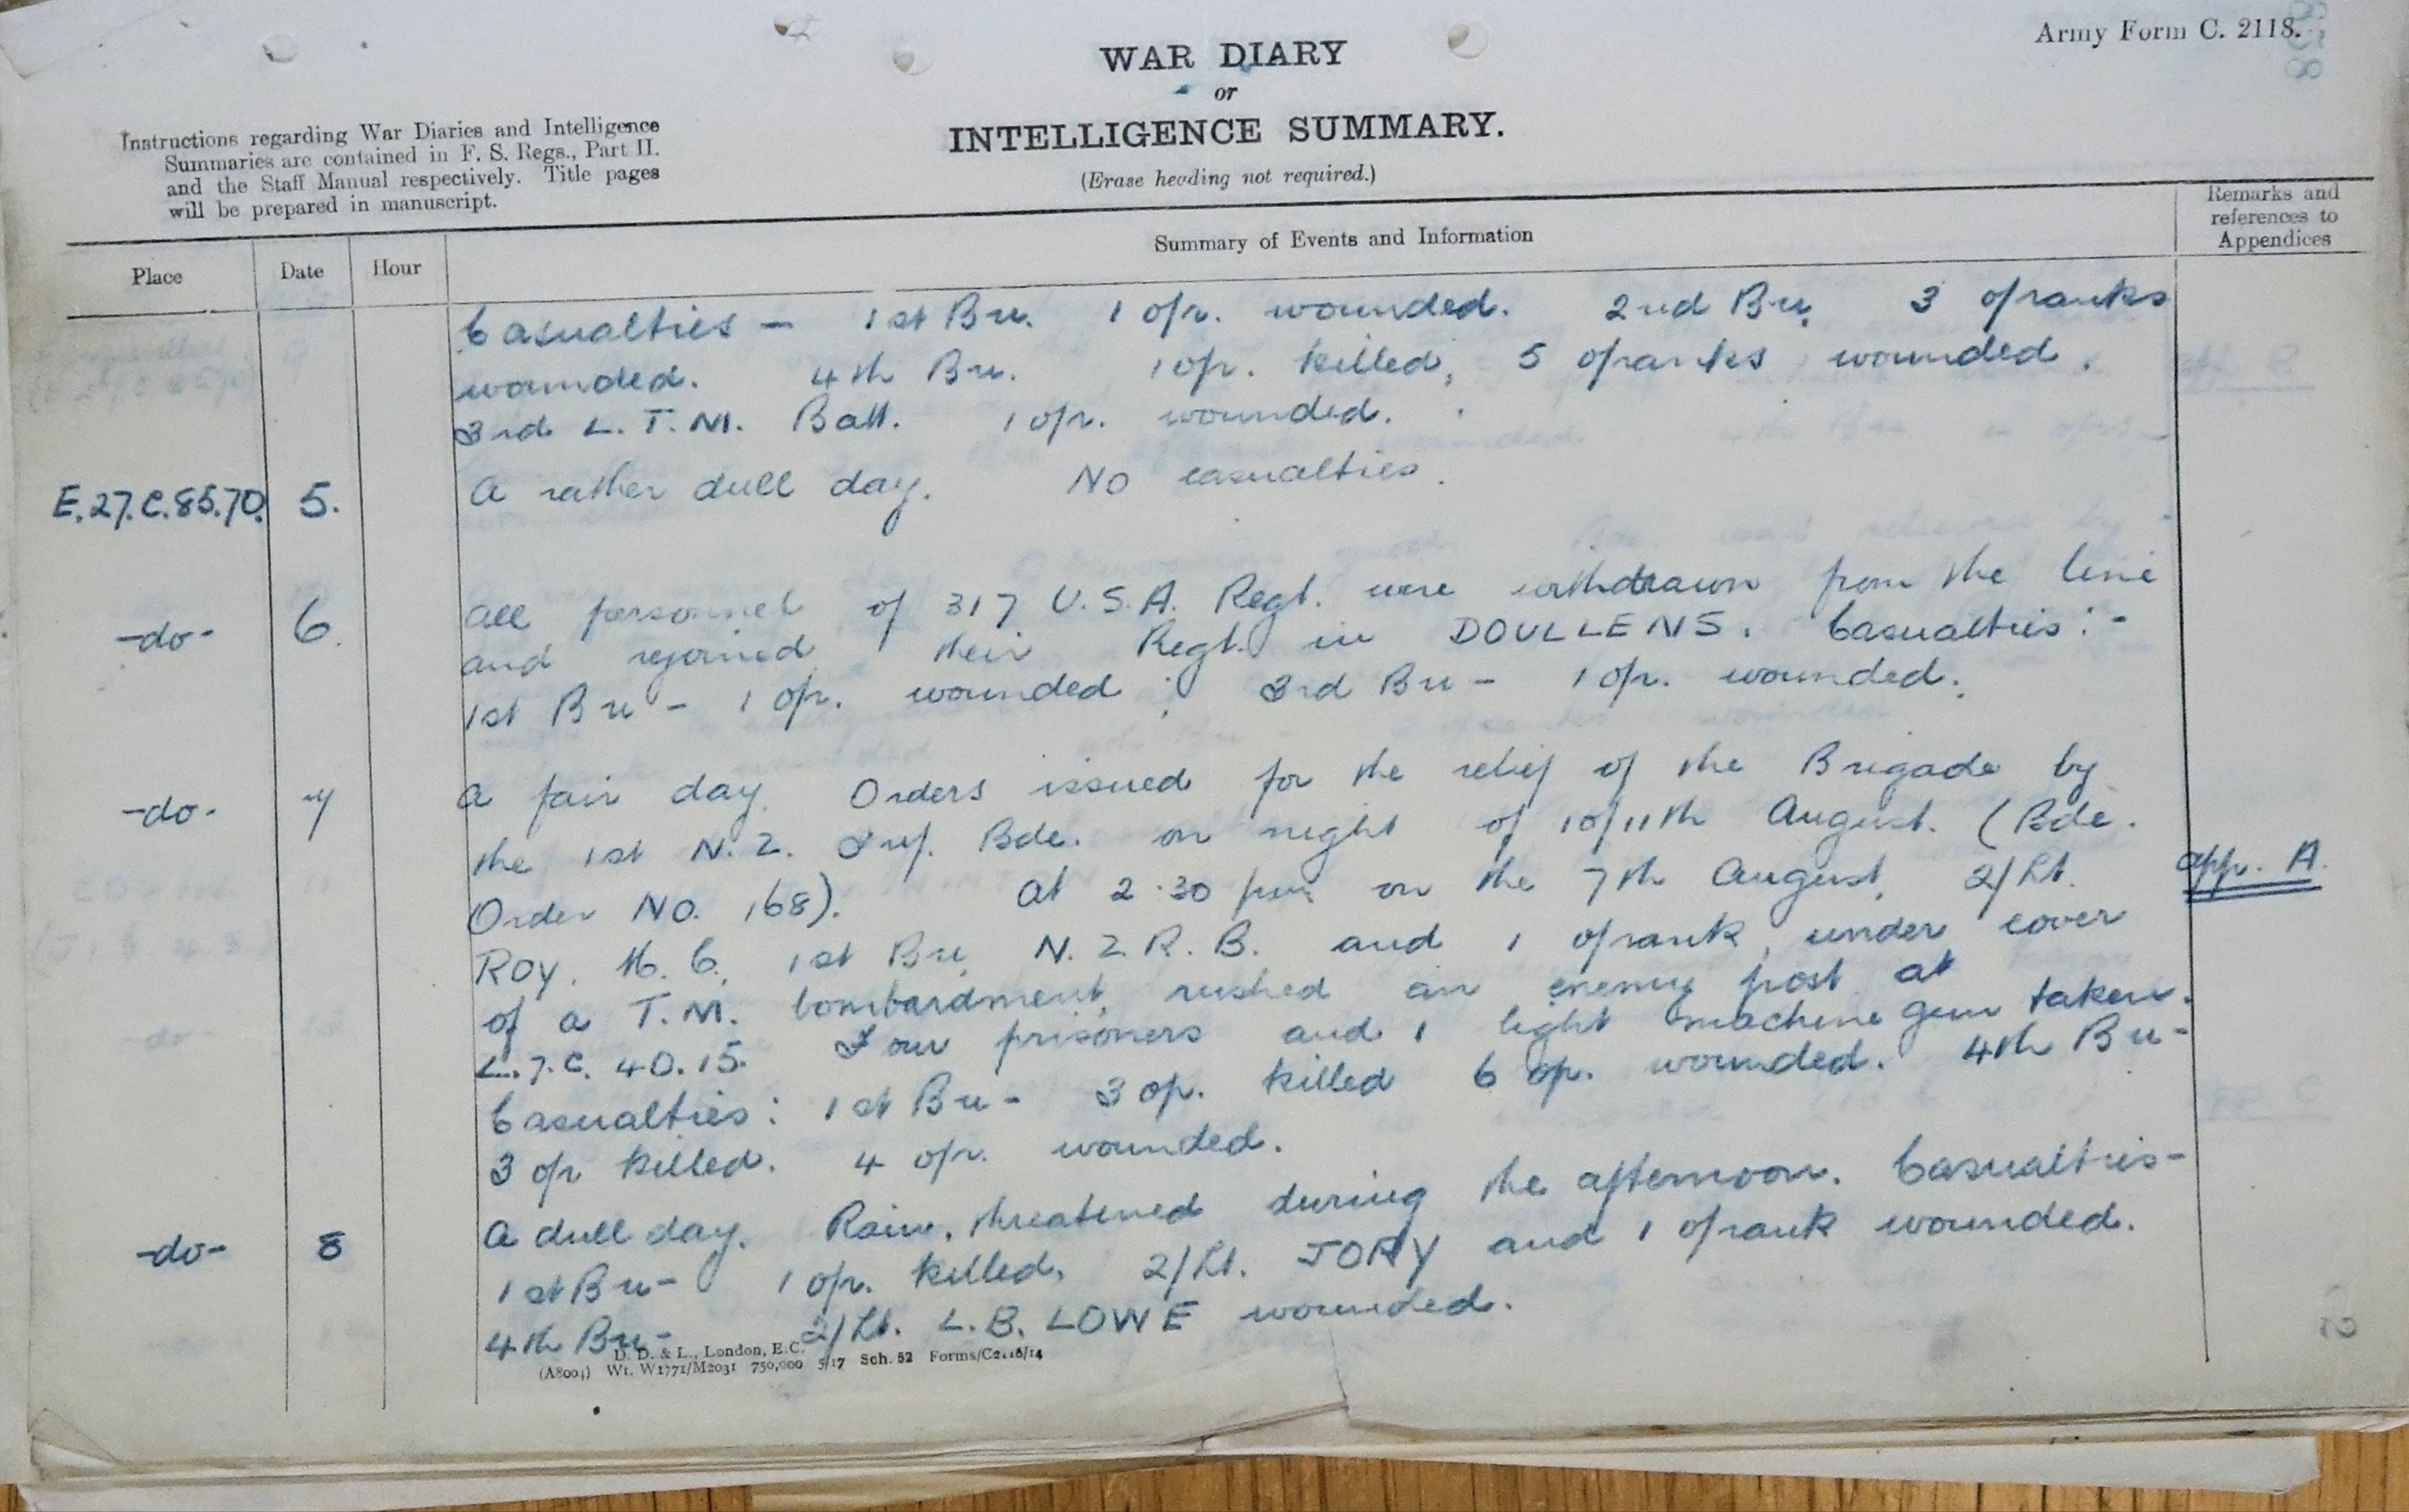 Army Form C. 2118.
WAR DIARY
or
INTELLIGENCE SUMMARY.
(Erase heading not required.)
Instructions regarding War Diaries and Intelligence
Summaries are contained in F. S. Regs., Part II.
and the Staff Manual respectively. Title pages
will be prepared in manuscript.
Place
Date
Hour
Summary of Events and Information
Remarks and
references to
Appendices
Casualties - 1st Bn. 1 o/r. wounded. 2nd Bn. 3 o/ranks
wounded. 4th Bn. 1 o/r. killed, 5 o/ranks wounded.
3rd L. T. M. Batt. 1 o/r. wounded.
E.27.C.85.70. 5. A rather dull day. No casualties.
-do- 6. All personnel of 317 U.S.A. Regt. were withdrawn from the line
and rejoined their Regt. in DOULLENS. Casualties:-
1st Bn - 1 o/r. wounded; 3rd Bn - 1 o/r. wounded.
-do- 7 A fair day. Orders issued for the relief of the Brigade by
the 1st N.Z. Inf. Bde. on night of 10/11th August. (Bde.
Order No. 168). At 2.30 pm on the 7th August, 2/Lt. app. A.
ROY. H. C., 1st Bn, N.Z.R.B. and 1 o/rank, under cover
of a T.M. bombardment, rushed an enemy post at
L.7.C. 40.15. Four prisoners and 1 light machine gun taken.
Casualties: 1st Bn - 3 o/r. killed 6 o/r. wounded. 4th Bn -
3 o/r killed. 4 o/r. wounded.
-do- 8 A dull day. Rain, threatened during the afternoon. Casualties-
1st Bn - 1 o/r. killed, 2/Lt. JORY and 1 o/rank wounded.
4th Bn - 2/Lt. L.B. LOWE wounded.
D. D. & L., London, E.C.
(A8004) Wt. W1771/M2031 750,000 5/17 Sch. 52 Forms/C2118/14